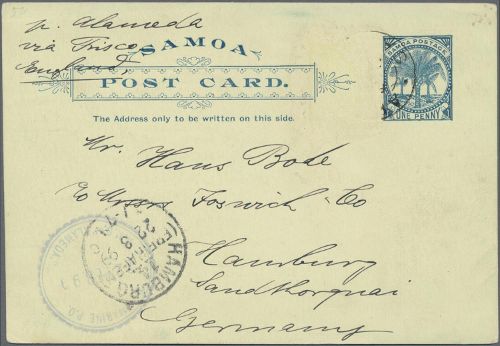 p. Alameda
via Frisco
England,
SAMOA
POST CARD.
The Address only to be written on this side.
SAMOA POSTAGE
ONE PENNY
Mr. Hans Bode
c/o Messrs Foswich & Co
Hamburg
Sandthorquai
Germany
HAMBURG
MARINE P.O.
ALAMEDA